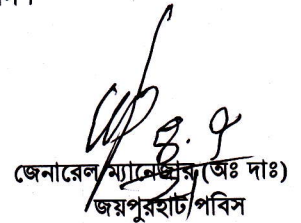 জেনারেল ম্যানেজার (অঃ দাঃ)
জয়পুরহাট পবিস